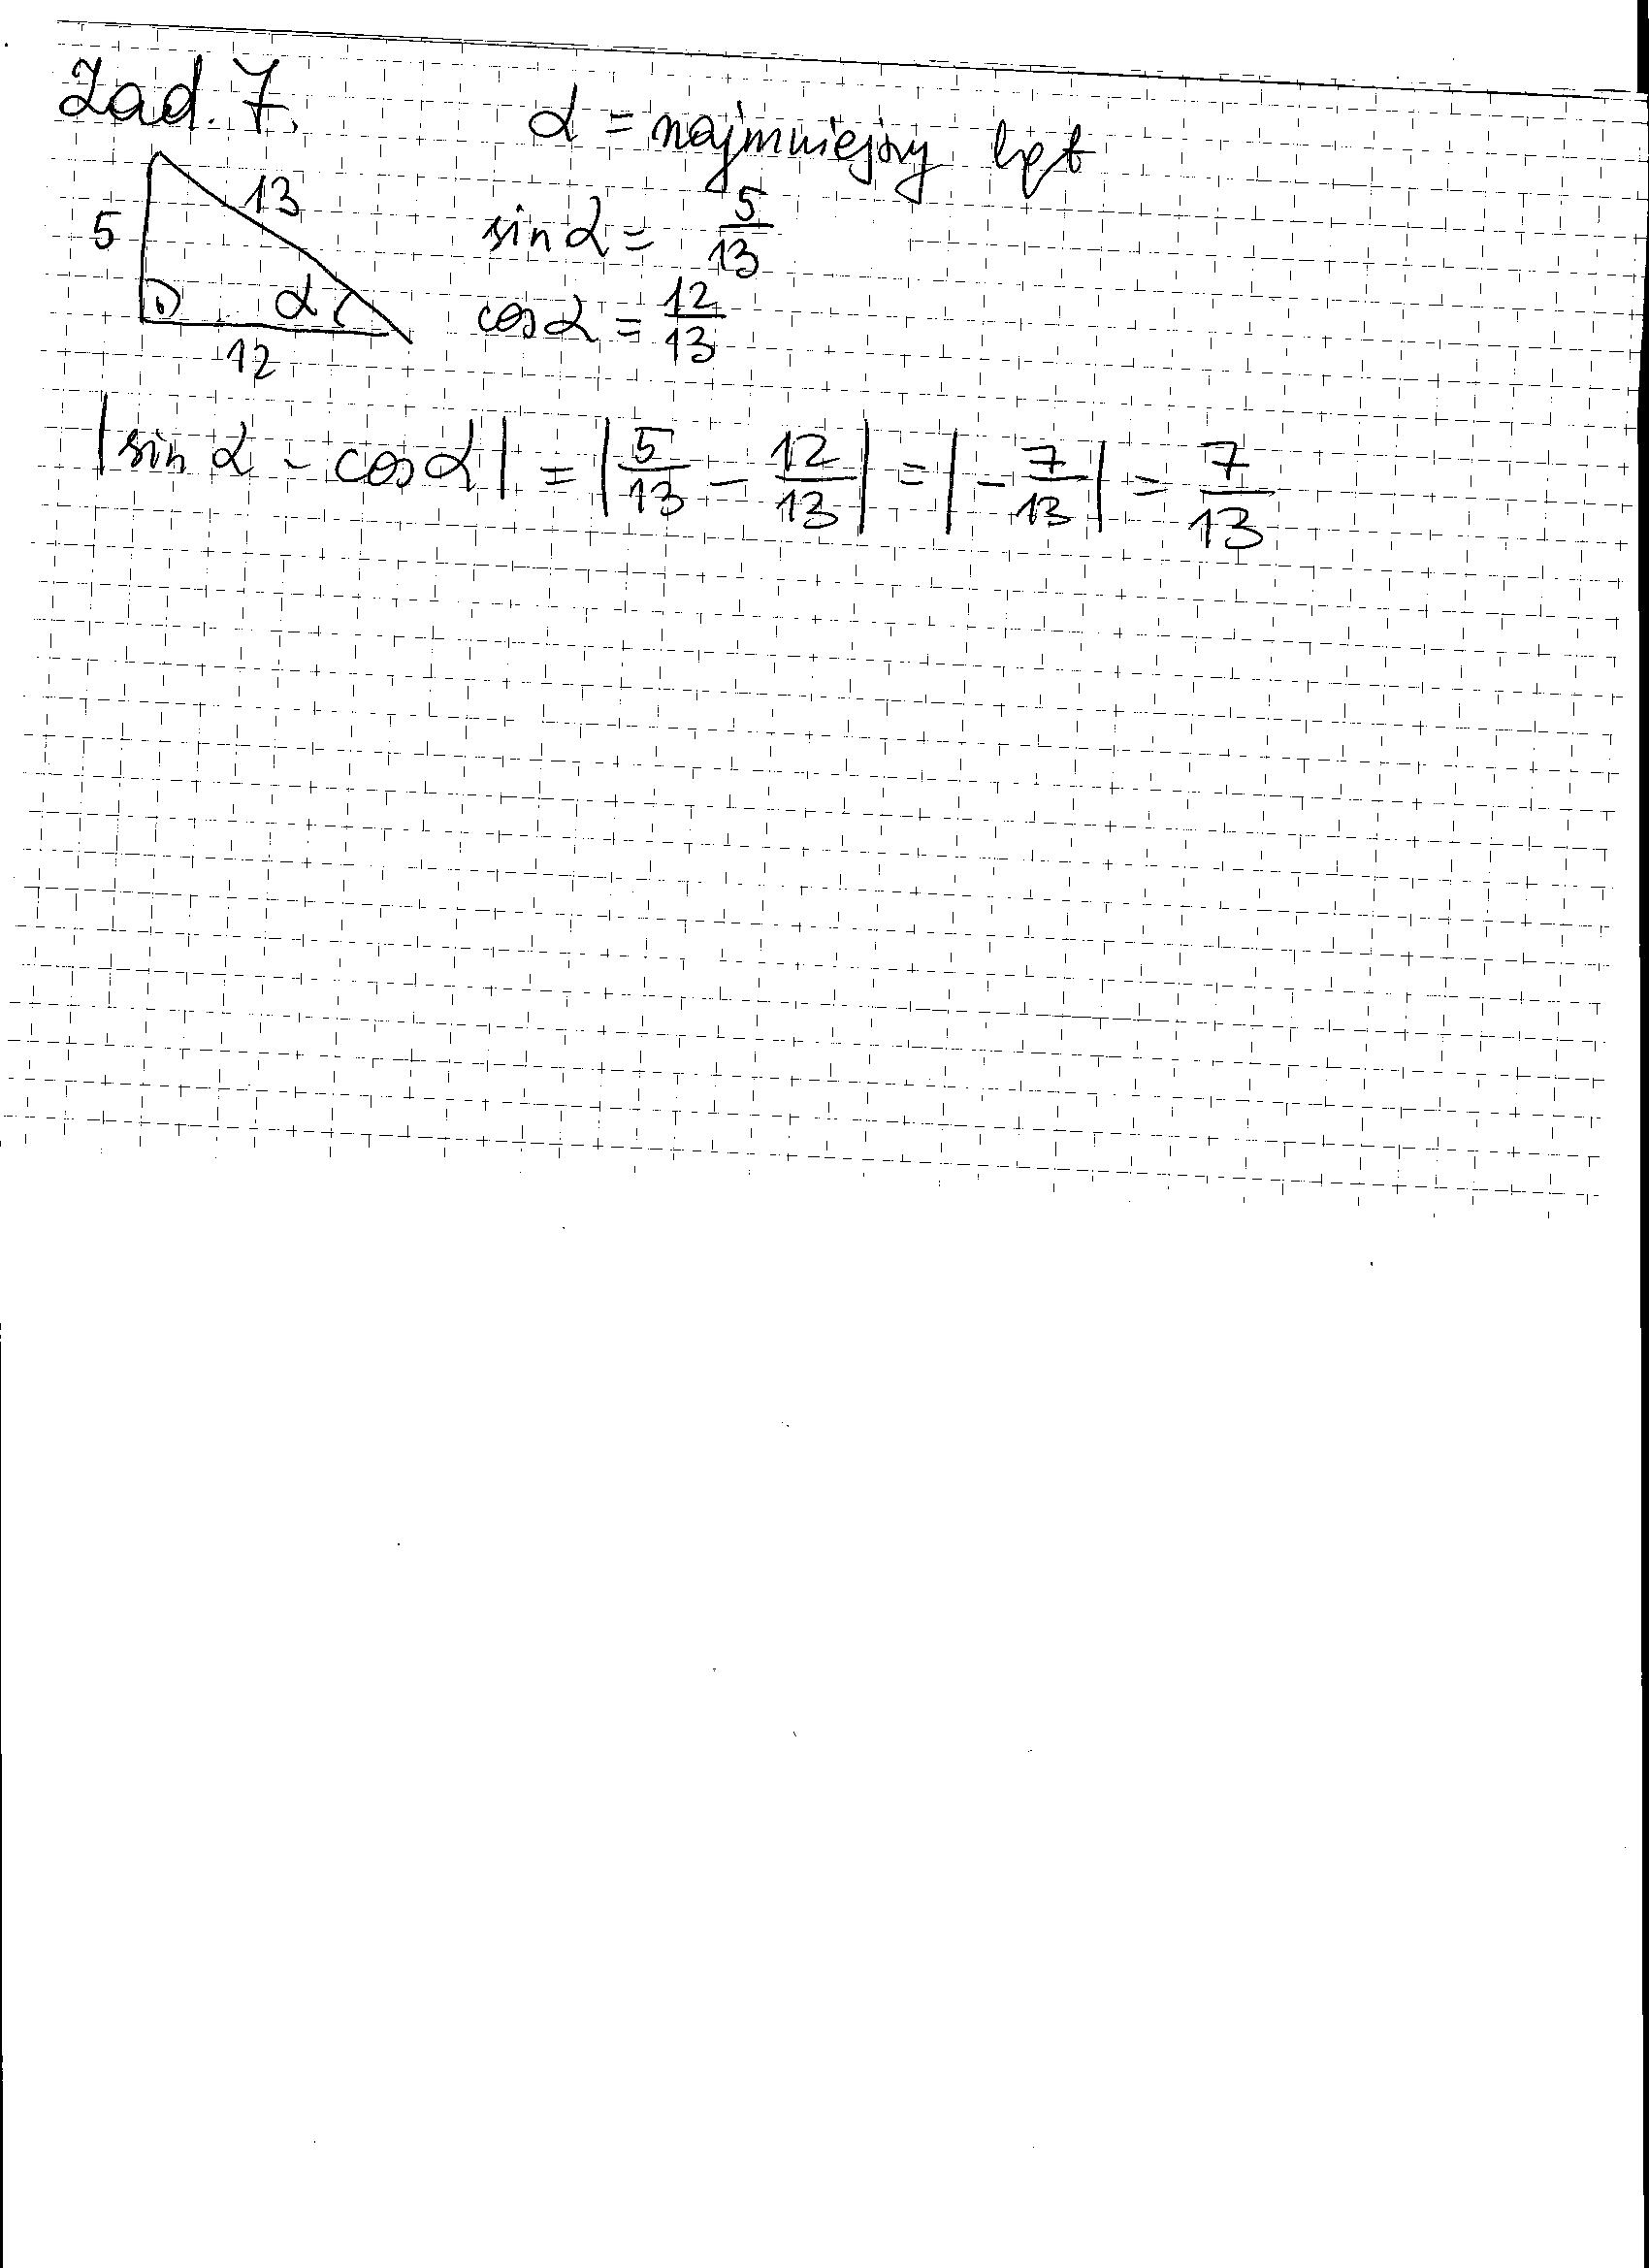 Zad. 7.
α = najmniejszy kąt
13
5
sin α = 5/13
α
cos α = 12/13
12
|sin α - cos α| = |5/13 - 12/13| = |- 7/13| = 7/13